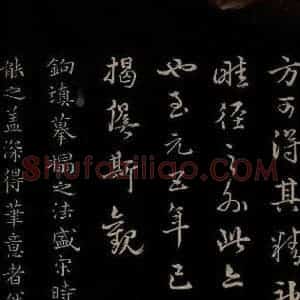 方可得其精神
畦径之外此亦
也至元五年己
揭傒斯觀
鉤填摹搨之法盛宋時
能之蓋深得筆意者然
Shufaziliao.COM